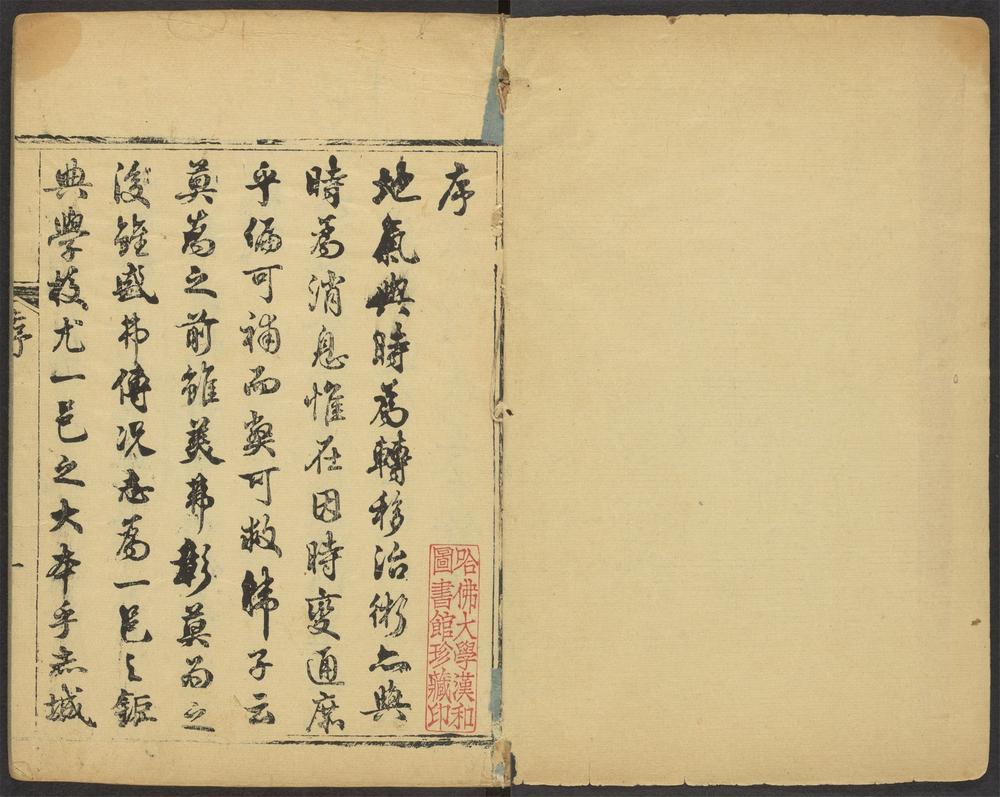 序
地氣與時為轉移治術亦與
時為消息惟在因時變通庶
乎偏可補而獘可救韓子云
莫為之前雖美弗彰莫為之
後雖盛弗傳況志為一邑之鉅
典學校尤一邑之大本乎赤城
序
一
哈佛大學漢和
圖書館珍藏印